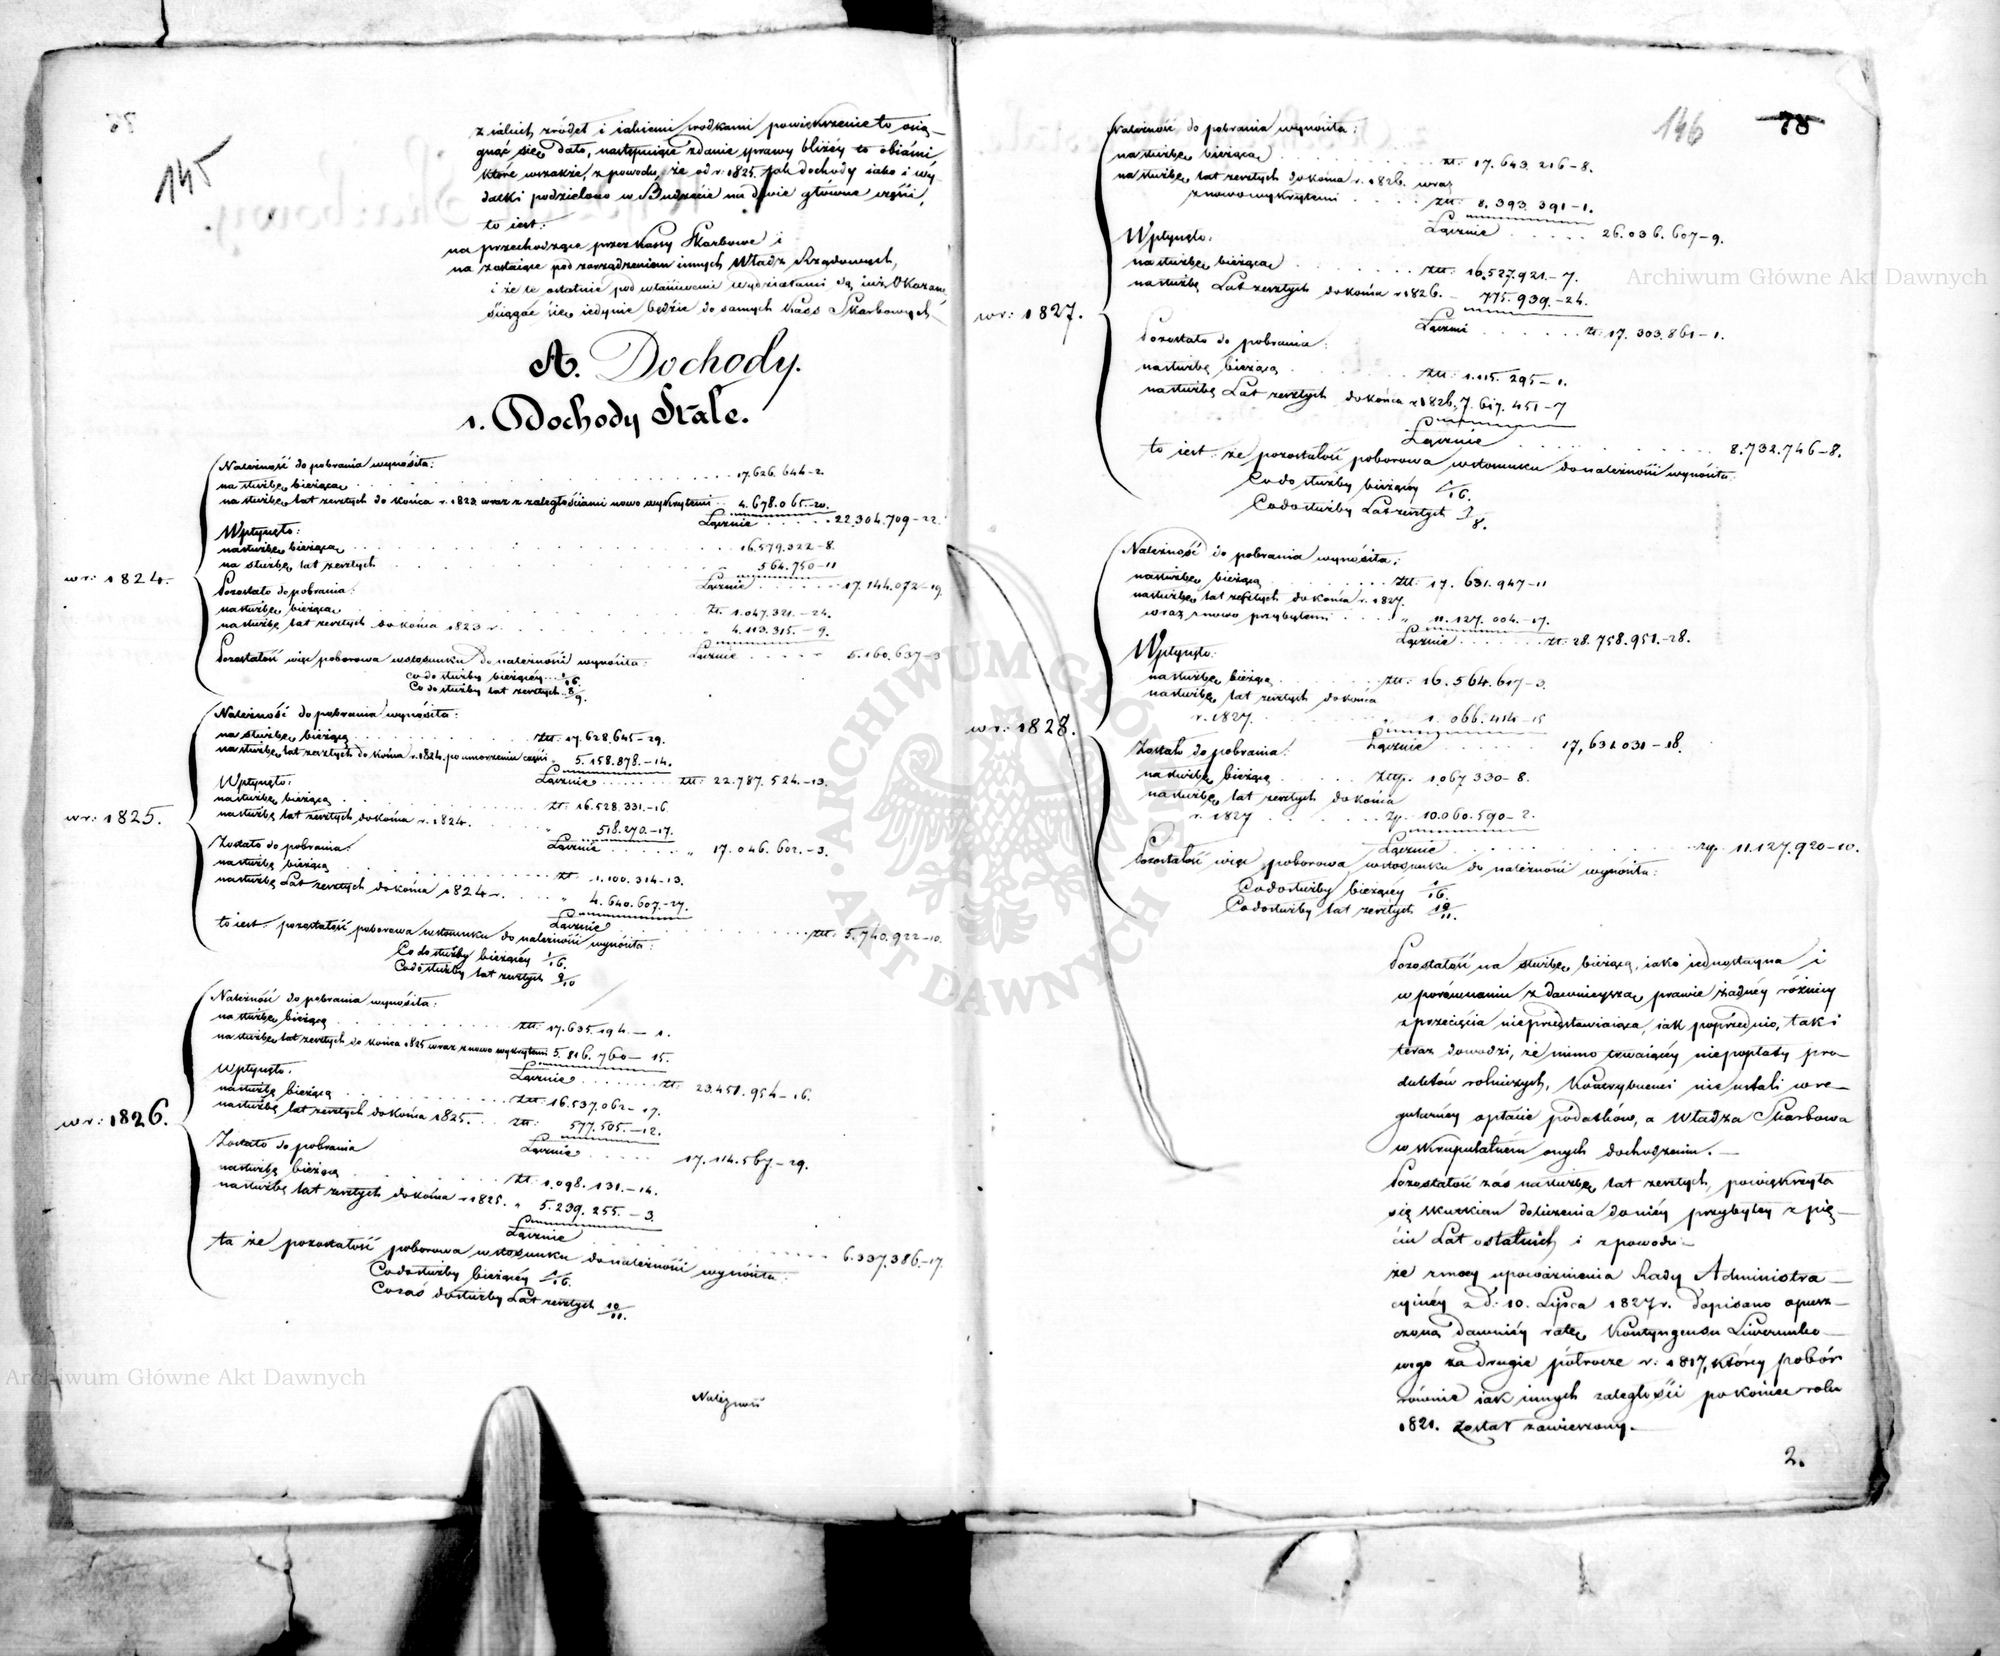 145
z iakich źródeł i iakiemi środkami powiększenie to osią-
gnąć się dało, następuiące zdanie sprawy bliżéy to obiaśni
które wszakże, z powodu, że od r: 1825. jak dochody iako i wy-
datki podzielono w Budżecie na dwie główne części,
to iest:
na przechodzące przez kassy Skarbowe i
na zostaiące pod zarządzeniem innych Władz Rządowych,
i że te ostatnie pod właściwemi wydziałami są iuż Okazane
ściągać się iedynie będzie do samych kass Skarbowych
A. Dochody.
1. Dochody Stałe.
w r: 1824.
Należność do pobrania wynosiła:
na służbę bieżącą 17.626.644-2.
na służbę lat zeszłych do końca r. 1823 wraz z zaległościami nowo wykrytemi 4.678.065.-20.
Łącznie 22.304.709-22.
Wpłynęło:
na służbę bieżącą 16.579.322-8.
na służbę lat zeszłych 564.750-11
Łącznie 17.144.072-19
Pozostało do pobrania:
na służbę bieżącą Zł. 1.047.321.-24.
na służbę lat zeszłych do końca 1823 r. 4.113.315.-9.
Łącznie 5.160.637-3
Pozostałość więc poborowa w stosunku do należności wynosiła:
co do służby bieżącéy 1/16.
Co do służby lat zeszłych 8/9.
w r: 1825.
Należność do pobrania wynosiła:
na służbę bieżącą złł: 17.628.645-29.
na służbę lat zeszłych do końca r. 1824. po umorzeniu części 5.158.878.-14.
Łącznie złł: 22.787.524.-13.
Wpłynęło:
na służbę bieżącą zł: 16.528.331.-16
na służbę lat zeszłych do końca r. 1824. 518.270.-17.
Łącznie 17.046.602.-3.
Zostało do pobrania:
na służbę bieżącą zł 1.100.314-13.
na służbę Lat zeszłych do końca 1824 r. 4.640.607.-27.
Łącznie złł: 5.740.922-10.
to iest: pozostałość poborowa w stosunku do należności wynosiła:
Co do służby bieżącéy 1/16.
Co do służby lat zeszłych 9/10
w r: 1826.
Należność do pobrania wynosiła:
na służbę bieżącą złł: 17.635.194.-1.
na służbę lat zeszłych do końca 1825 wraz z nowo wykrytemi 5.816.760-15.
Łącznie zł: 23.451.954-16.
Wpłynęło:
na służbę bieżącą złł: 16.537.062-17.
na służbę lat zeszłych do końca 1825. złł: 577.505.-12.
Łącznie 17.114.567-29.
Zostało do pobrania
na służbę bieżącą złł: 1.098.131.-14.
na służbę lat zeszłych do końca r 1825. 5.239.255.-3.
Łącznie 6.337.386.-17.
ta że pozostałość poborowa w stosunku do należności wynosiła:
Co do służby bieżącéy 1/16.
Co zaś do służby Lat zeszłych 10/11.
Należność
146 78
w r: 1827.
Należność do pobrania wynosiła:
na służbę bieżącą zł. 17.643.216-8.
na służbę lat zeszłych do końca r. 1826. wraz
z nowo wykrytemi złł: 8.393.391-1.
Łącznie 26.036.607-9.
Wpłynęło:
na służbę bieżącą złł: 16.527.921.-7.
na służbę Lat zeszłych do końca r 1826. 775.939.-24.
Łączni zł: 17.303.861-1.
Pozostało do pobrania:
na służbę bieżącą złł: 1.115.295-1.
na służbę Lat zeszłych do końca r 1826. 7.617.451-7
Łącznie 8.732.746-8.
to iest: że pozostałość poborowa w stosunku do należności wynosiła
Co do służby bieżącéy 1/16.
Co do służby Lat zeszłych 7/8.
w r: 1828.
Należność do pobrania wynosiła:
na służbę bieżącą złł: 17.631.947-11
na służbę lat zeszłych do końca r. 1827.
wraz z nowo przybyłemi 11.127.004.-17.
Łącznie zł: 28.758.951.-28.
Wpłynęło:
na służbę bieżącą złł: 16.564.617-3.
na służbę lat zeszłych do końca
r. 1827. 1.066.414-15
Łącznie 17,631.031-18.
Zostało do pobrania:
na służbę bieżącą złłp. 1.067.330-8.
na służbę lat zeszłych do końca
r. 1827 zp. 10.060.590-2.
Łącznie złp. 11.127.920-10.
Pozostałość więc poborowa w stosunku do należności wynosiła:
Co do służby bieżącéy 1/16.
Co do służby lat zeszłych 10/11.
Pozostałość na służbę bieżącą, iako iednostayna i
w porównaniu z dawnieyszą prawie żadnéy różnicy
z przecięcia nieprzedstawiaiąca, iak poprzednio, tak i
teraz dowodzi, że mimo trwaiącéy niepopłaty pro-
duktów rolniczych, Kontrybuenci nie ustali w re-
gularnéy opłacie podatków, a Władza Skarbowa
w skrupulatnem onych dochodzeniu.-
Pozostałość zaś na służbę lat zeszłych, powiększyła
się skutkiem doliczenia do niéy przybyłéy z pię-
ciu Lat ostatnich i z powodu-
że z mocy upoważnienia Rady Administra-
cyinéy z d: 10. Lipca 1827 r. dopisano opusz-
czoną dawniéy ratę Kontyngensu Liwerunko-
wego za drugie półrocze r: 1817, któréy pobór
równie iak innych zaległości po koniec roku
1821. został zawieszony.-
2.
Archiwum Główne Akt Dawnych
Archiwum Główne Akt Dawnych
ARCHIWUM GŁÓWNE AKT DAWNYCH